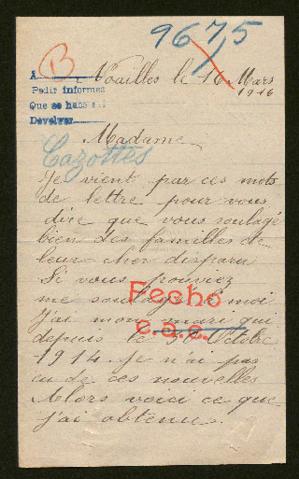 9675
B
A
Noailles le 16 Mars
1916
Pedir informes
Que se hace
Devolver
Madame
Cazottes
Je vient par ces mots
de lettre pour vous
dire que vous soulagé
bien des familles de
leurs cher disparu
Si vous pouviez
me soulager moi
Fecho
J'ai mon mari qui
depuis le Octobre
1914. Je n'ai pas
eu de ces nouvelles
Alors voici ce que
j'ai obtenu.